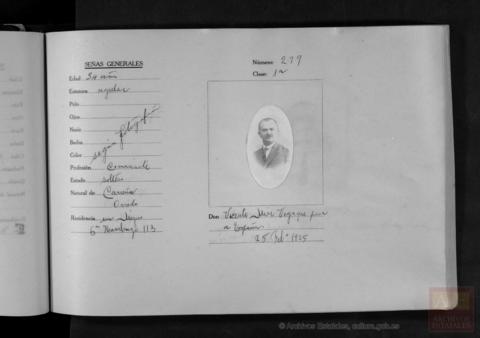 SEÑAS GENERALES
Edad 34 años
Estatura regular
Pelo
Ojos
Nariz
Barba
Color
según fotografía
Profesión Comerciante
Estado soltero
Natural de Carreña
Oviedo
Residencia en
6ª 113
Número: 277
Clase: 1ª
Don Vicente que va
a España
25 Feb° 1925
© Archivos Estatales, cultura.gob.es
ARCHIVOS
ESTATALES